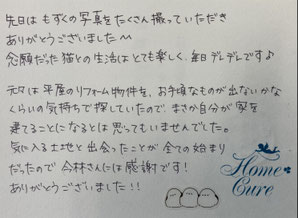 先日は もずくの写真をたくさん撮っていただき
ありがとうございました〜
念願だった猫との生活はとても楽しく、毎日デレデレです♪
元々は平屋のリフォーム物件を、お手頃なものが出ないかな
くらいの気持ちで探していたので、まさか自分が家を
建てることになるとは思ってもいませんでした。
気に入る土地と出会ったことが全ての始まり
だったので今林さんには感謝です!
ありがとうございました!!
Home Cure